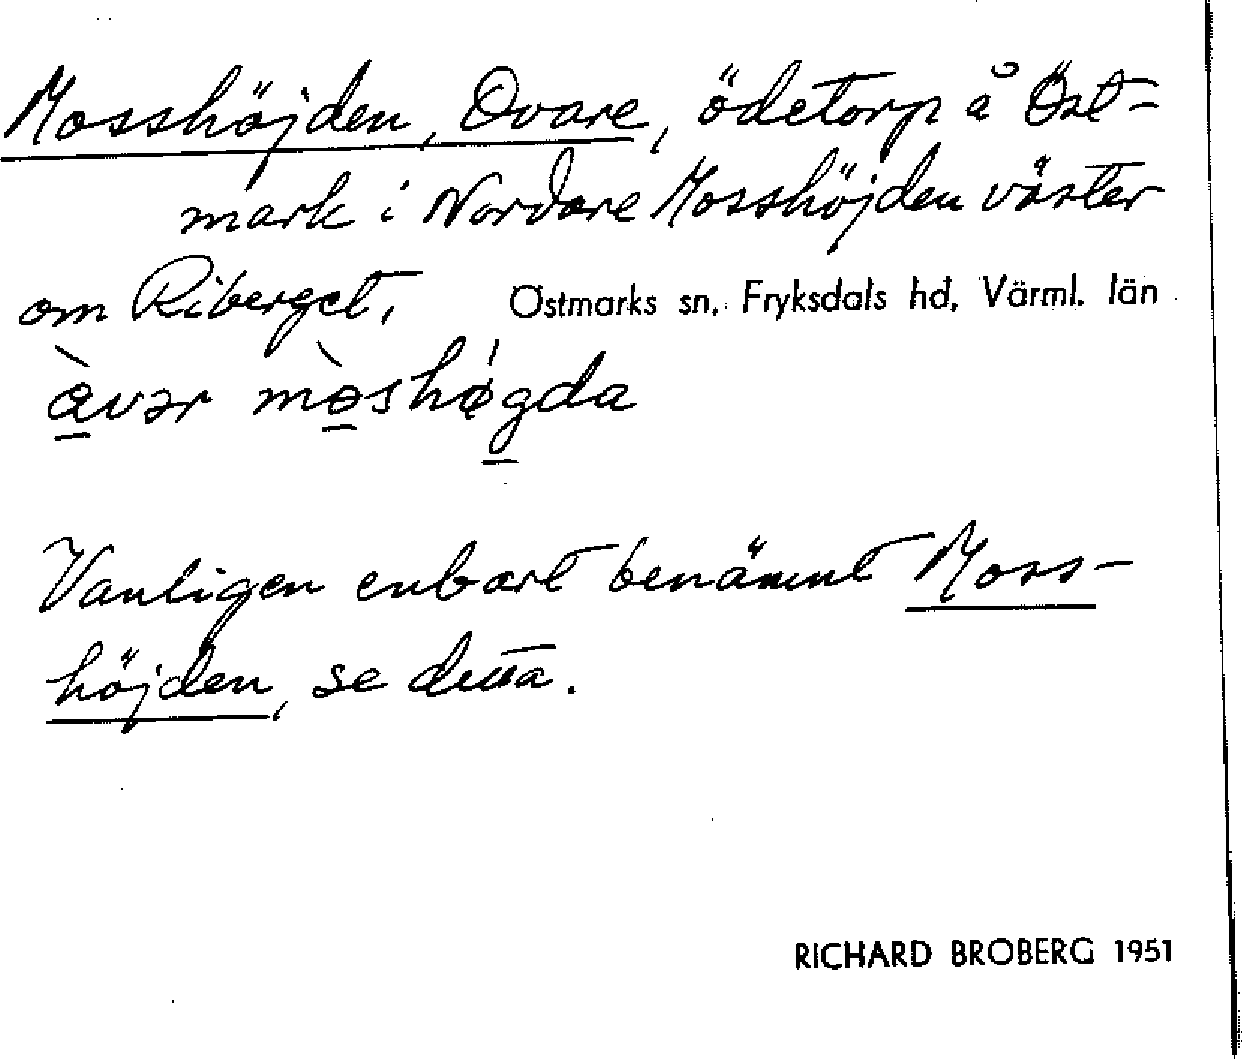 Mosshöjden, Ovare, ödetorp å Öst-
mark i Nordare Mosshöjden väster
om Riberget, Östmarks sn, Fryksdals hd, Värml. län
àvər mòshǿgda
Vanligen enbart benämnt Moss-
höjden, se detta.
RICHARD BROBERG 1951